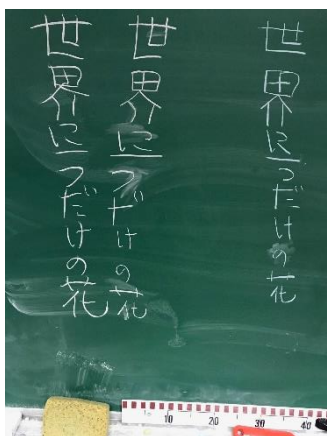 世界に一つだけの花
世界に一つだけの花
世界に一つだけの花
10 20 30 40